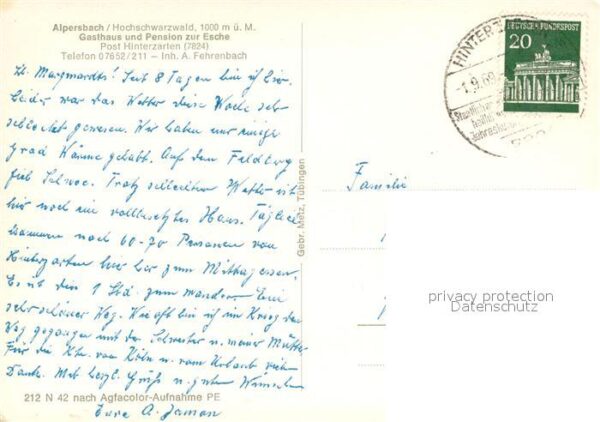 Alpersbach / Hochschwarzwald, 1000 m ü. M.
Gasthaus und Pension zur Esche
Post Hinterzarten (7824)
Telefon 07652/211 – Inh. A. Fehrenbach
Seit 8 Tagen bin ich hier.
Leider war das Wetter diese Woche sehr
schlecht gewesen. Wir haben nur einige
grad Wärme gehabt. Auf dem Feldberg
fiel Schnee. Trotz schlechten Wetter ist
hier noch ein vollbesetztes Haus. Täglich
kommen noch 60-70 Personen von
Hinterzarten hier her zum Mittagessen.
Es ist den 1 Std. zum wandern. Ein
sehr schöner Weg. Wie oft bin ich im Krieg den
Weg gegangen mit der Schwester u. meiner Mutter
Für die Kte. von Köln u. vom Urlaub vielen
Dank. Mit herzl. Grüß u. guten Wünschen
Eure A.
212 N 42 nach Agfacolor-Aufnahme PE
Gebr. Metz, Tübingen
HINTERZ
1.9.69
DEUTSCHE BUNDESPOST
20
Familie
privacy protection
Datenschutz